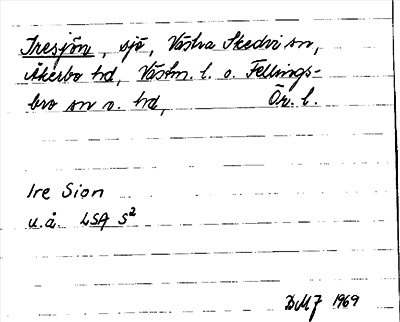 Iresjön, sjö, Västra Skedvi sn,
Åkerbo hd, Västm. l. o. Fellings-
bro sn o. hd, Ör. l.
Ire Sion
u.å. LSA S²
DMJ 1969